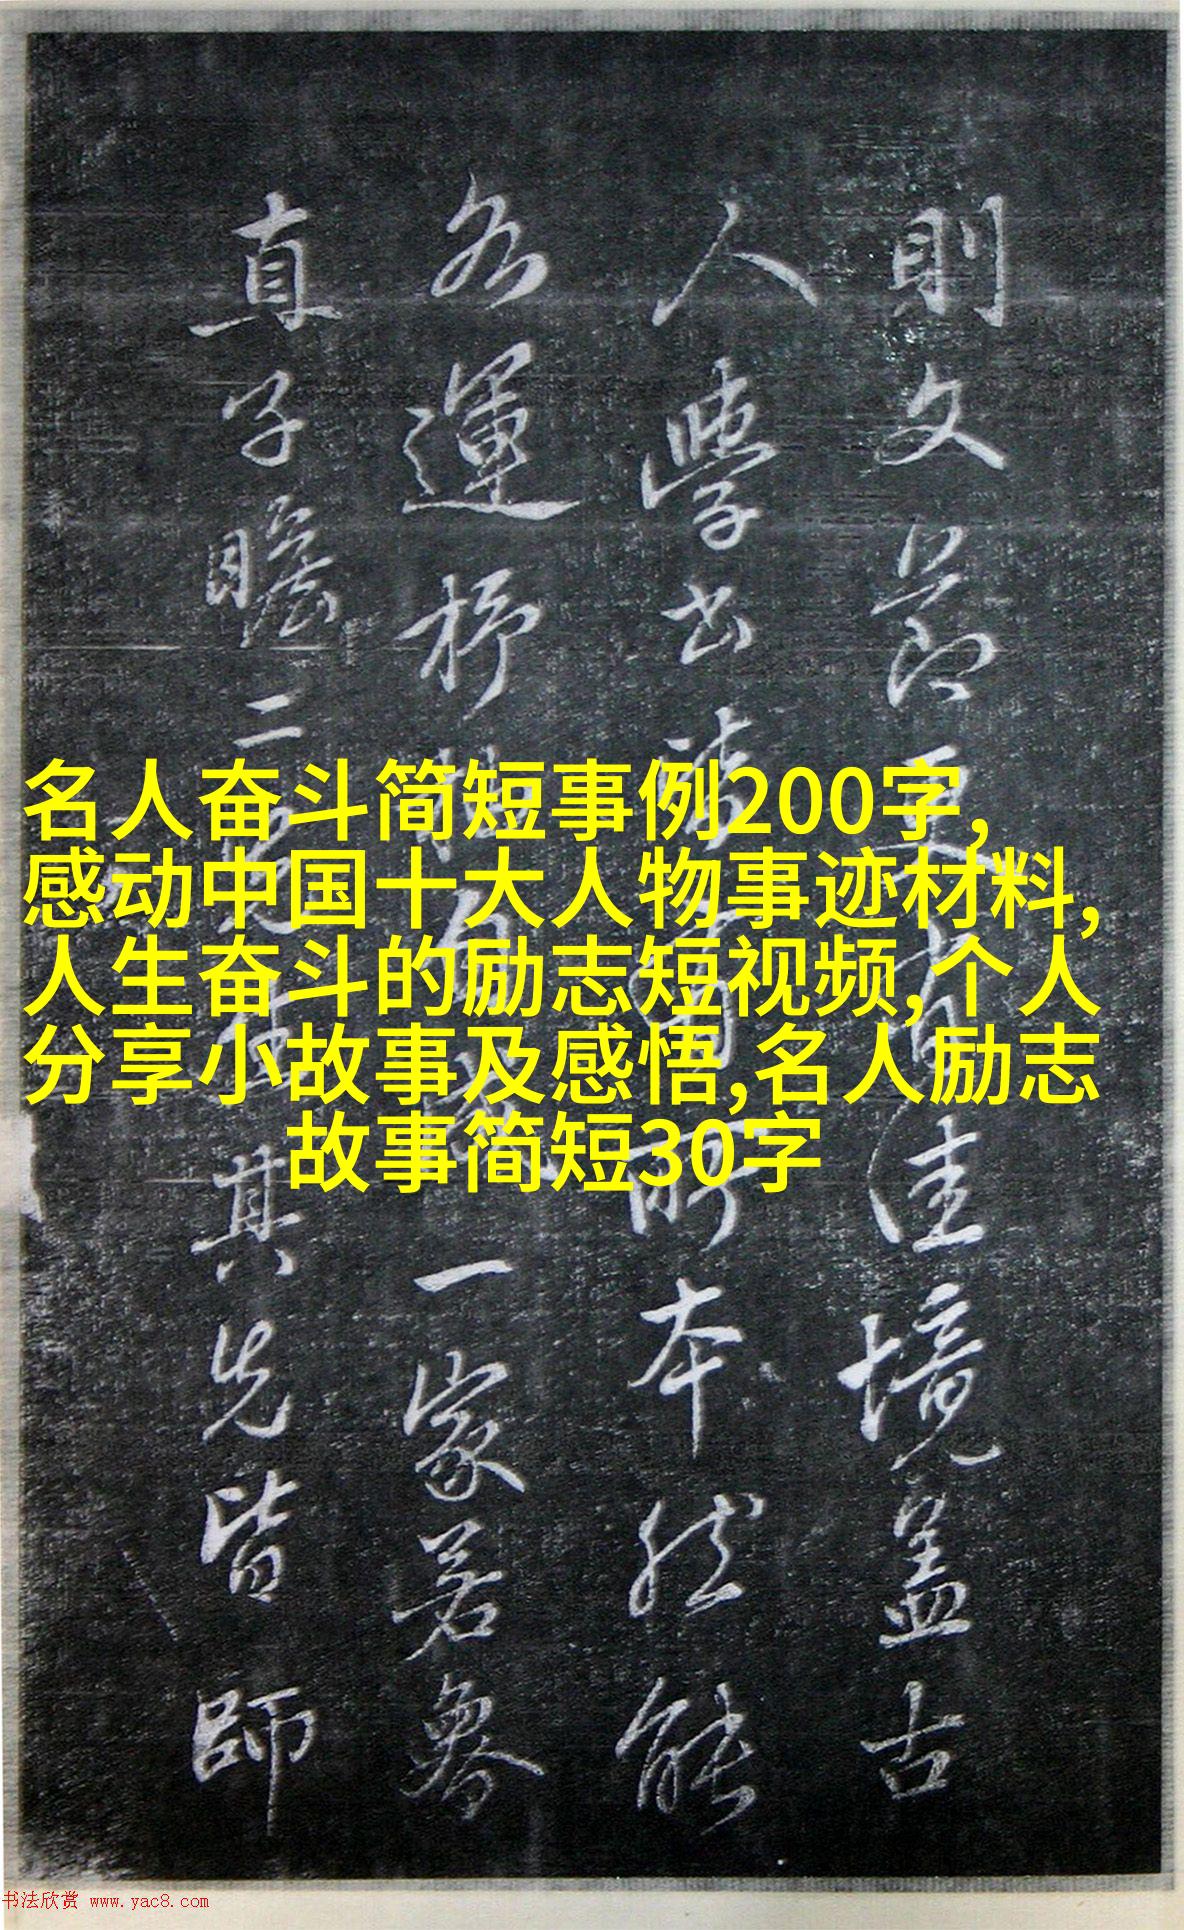 名人奋斗简短事例200字,
感动中国十大人物事迹材料,
人生奋斗的励志短视频,个人
分享小故事及感悟,名人励志
故事简短30字
則文節更有佳境蓋古
人學書
所本然能
各運抒
一家若魯
直子瞻二
其先皆師
书法欣赏 www.yac8.com